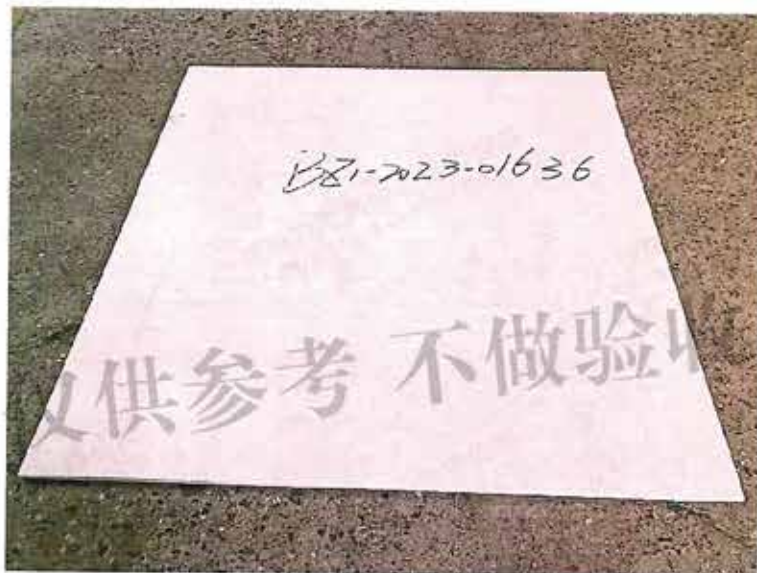 BZ1-2023-01636
仅供参考 不做验收